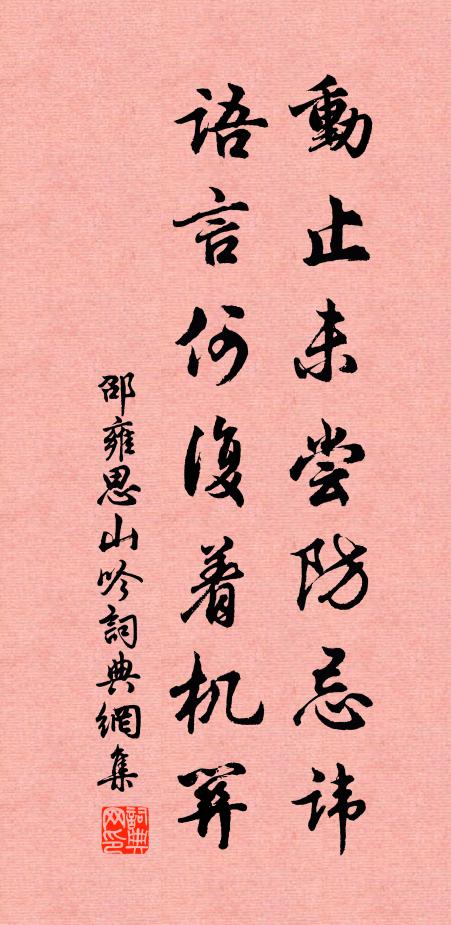 動止未尝防忌讳
语言何復着机関
邵雍思山吟詞典網集
詞典网印